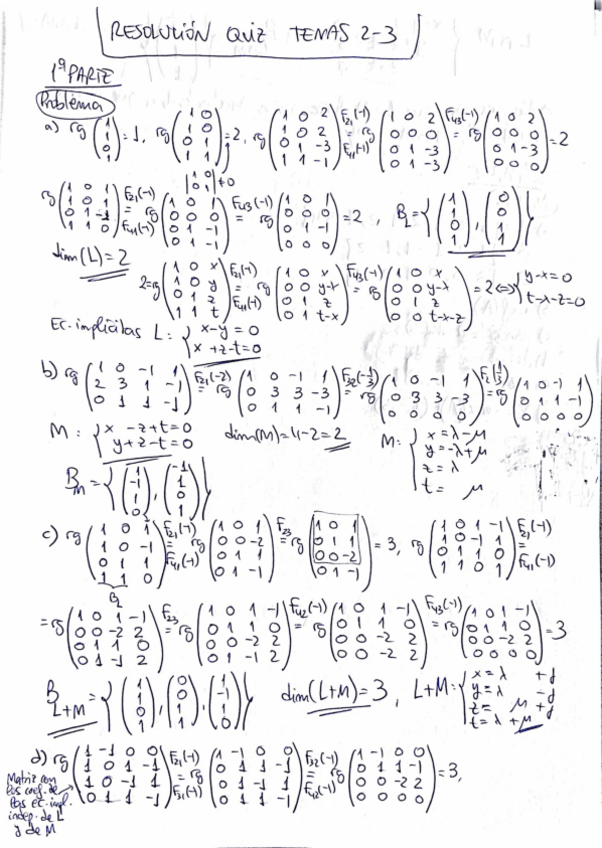 RESOLUCIÓN QUIZ TEMAS 2-3
1ª PARTE
Problema
a) rg (1 1 0 1) = 1, rg (1 0 / 1 0 / 0 1 / 1 1) = 2, rg (1 0 2 / 1 0 2 / 0 1 -3 / 1 1 -1) F21(-1) = F41(-1) rg (1 0 2 / 0 0 0 / 0 1 -3 / 0 1 -3) F43(-1) = rg (1 0 2 / 0 0 0 / 0 1 -3 / 0 0 0) = 2
|1 0 / 0 1| ≠ 0
rg (1 0 1 / 1 0 1 / 0 1 -1 / 1 1 0) F21(-1) = F41(-1) rg (1 0 1 / 0 0 0 / 0 1 -1 / 0 1 -1) F43(-1) = rg (1 0 1 / 0 0 0 / 0 1 -1 / 0 0 0) = 2, B_L = {(1 1 0 1), (0 0 1 1)}
dim(L) = 2
2 = rg (1 0 x / 1 0 y / 0 1 z / 1 1 t) F21(-1) = F41(-1) rg (1 0 x / 0 0 y-x / 0 1 z / 0 1 t-x) F43(-1) = rg (1 0 x / 0 0 y-x / 0 1 z / 0 0 t-x-z) = 2 ⇔ { y-x=0 / t-x-z=0
Ec. implícitas L: { x-y=0 / x+z-t=0
b) rg (1 0 -1 1 / 2 3 1 -1 / 0 1 1 -1) F21(-2) = rg (1 0 -1 1 / 0 3 3 -3 / 0 1 1 -1) F32(-1/3) = rg (1 0 -1 1 / 0 3 3 -3 / 0 0 0 0) F2(1/3) = rg (1 0 -1 1 / 0 1 1 -1 / 0 0 0 0)
M: { x -z+t=0 / y+z-t=0 dim(M)=4-2=2 M: { x=λ-μ / y=-λ+μ / z=λ / t= μ
B_M = {(1 -1 1 0), (-1 1 0 1)}
c) rg (1 0 1 / 1 0 -1 / 0 1 1 / 1 1 0) F21(-1) = F41(-1) rg (1 0 1 / 0 0 -2 / 0 1 1 / 0 1 -1) F23 = rg (1 0 1 / 0 1 1 / 0 0 -2 / 0 1 -1) = 3, rg (1 0 1 -1 / 1 0 -1 1 / 0 1 1 0 / 1 1 0 1) F21(-1) = F41(-1)
B_L
= rg (1 0 1 -1 / 0 0 -2 2 / 0 1 1 0 / 0 1 -1 2) F23 = rg (1 0 1 -1 / 0 1 1 0 / 0 0 -2 2 / 0 1 -1 2) F42(-1) = rg (1 0 1 -1 / 0 1 1 0 / 0 0 -2 2 / 0 0 -2 2) F43(-1) = rg (1 0 1 -1 / 0 1 1 0 / 0 0 -2 2 / 0 0 0 0) = 3
B_L+M = {(1 1 0 1), (0 0 1 1), (1 -1 1 0)} dim(L+M) = 3, L+M: { x=λ +γ / y=λ -γ / z= μ+γ / t=λ+μ
d) rg (1 -1 0 0 / 1 0 1 -1 / 1 0 -1 1 / 0 1 1 -1) F21(-1) = F31(-1) rg (1 -1 0 0 / 0 1 1 -1 / 0 1 -1 1 / 0 1 1 -1) F32(-1) = F42(-1) rg (1 -1 0 0 / 0 1 1 -1 / 0 0 -2 2 / 0 0 0 0) = 3,
Matriz con
los coef. de
las ec. impl.
indep. de L
y de M